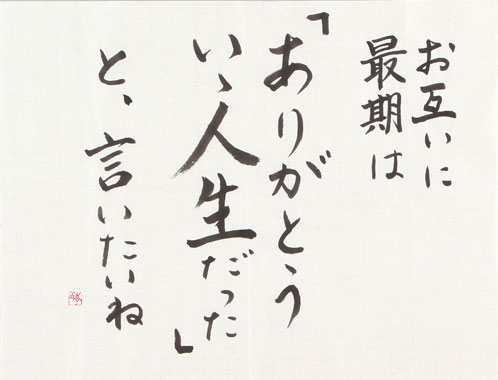 お互いに
最期は
「ありがとう
いゝ人生だった」
と、言いたいね